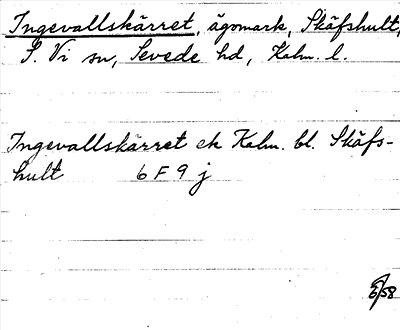 Ingevallskärret, ägomark, Skäfshult,
S. Vi sn, Sevede hd, Kalm. l.
Ingevallskärret ek Kalm. bl. Skäfs-
hult 6 F 9 j